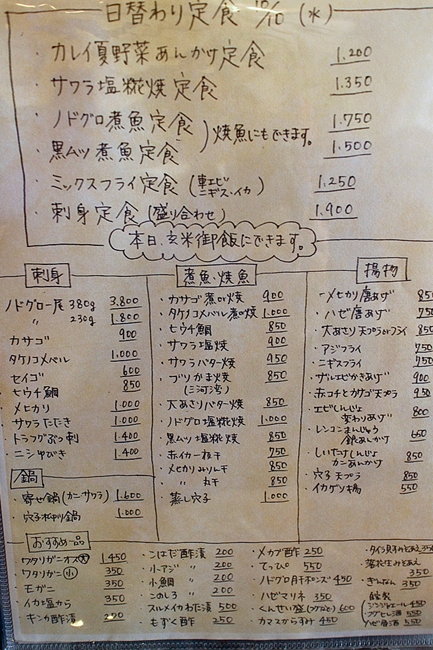 日替わり定食 10/10 (水)
・カレイ夏野菜あんかけ定食 1.200
・サワラ塩糀焼定食 1.350
・ノドグロ煮魚定食 1.750
・黒ムツ煮魚定食 1.500
焼魚にもできます。
・ミックスフライ定食 (車エビ ニギス・イカ) 1.250
・刺身定食 (盛り合わせ) 1.900
本日、玄米御飯にできます。
刺身
ノドグロ一尾 380g 3.800
〃 230g 1.800
カサゴ 900
タケノコメバル 1.000
セイゴ 600
ヒウチ鯛 850
メヒカリ 1.000
サワラたたき 1.000
トラフグぶつ刺 1.400
ニシゆびき 1.400
鍋
・寄せ鍋 (カニ・サワラ) 1.600
・穴子柳川鍋 1.000
煮魚・焼魚
・カサゴ煮or焼 900
・タケノコメバル煮or焼 1.000
・ヒウチ鯛 850
・サワラ塩焼 900
・サワラバター焼 950
・ブリかま焼 850
(三河湾)
・大あさりバター焼 850
・ノドグロ塩糀焼 1.000
・黒ムツ塩糀焼 850
・赤イカ一夜干 750
・メヒカリみりん干 850
・〃 丸干 850
・蒸し穴子 1.000
揚物
・メヒカリ唐あげ 850
・ハゼ唐あげ 750
・大あさり天プラorフライ 850
・アジフライ 750
・ニギスフライ 750
・ザルエビかきあげ 900
・赤コチとカサゴ天プラ 950
・エビしんじょ
変わりあげ 800
・レンコンまんじゅう
銀あんかけ 650
・しいたけしんじょ
カニあんかけ 850
・穴子天プラ 850
・イカゲソ揚 550
おすすめ一品
・ワタリガニオス(大) 1.450
・ワタリガニ(小) 350
・モガニ 350
・イカ塩から 350
・キンカ酢漬
・こはだ酢漬 200
・小アジ 〃 200
・小鯛 〃 200
・このしろ 〃 200
・スルメイカわた漬 500
・もずく酢 250
・メカブ酢 250
・てっぴ 550
・ノドグロ肝ポンズ 450
・ハゼマリネ 350
・くんせい盛 600
・カマスからすみ 450
350
・落花生みそあえ 350
・ぎんなん 350
・自家製
ジンジャエール 450
・フグヒレ酒 550
・ハゼ骨酒 550